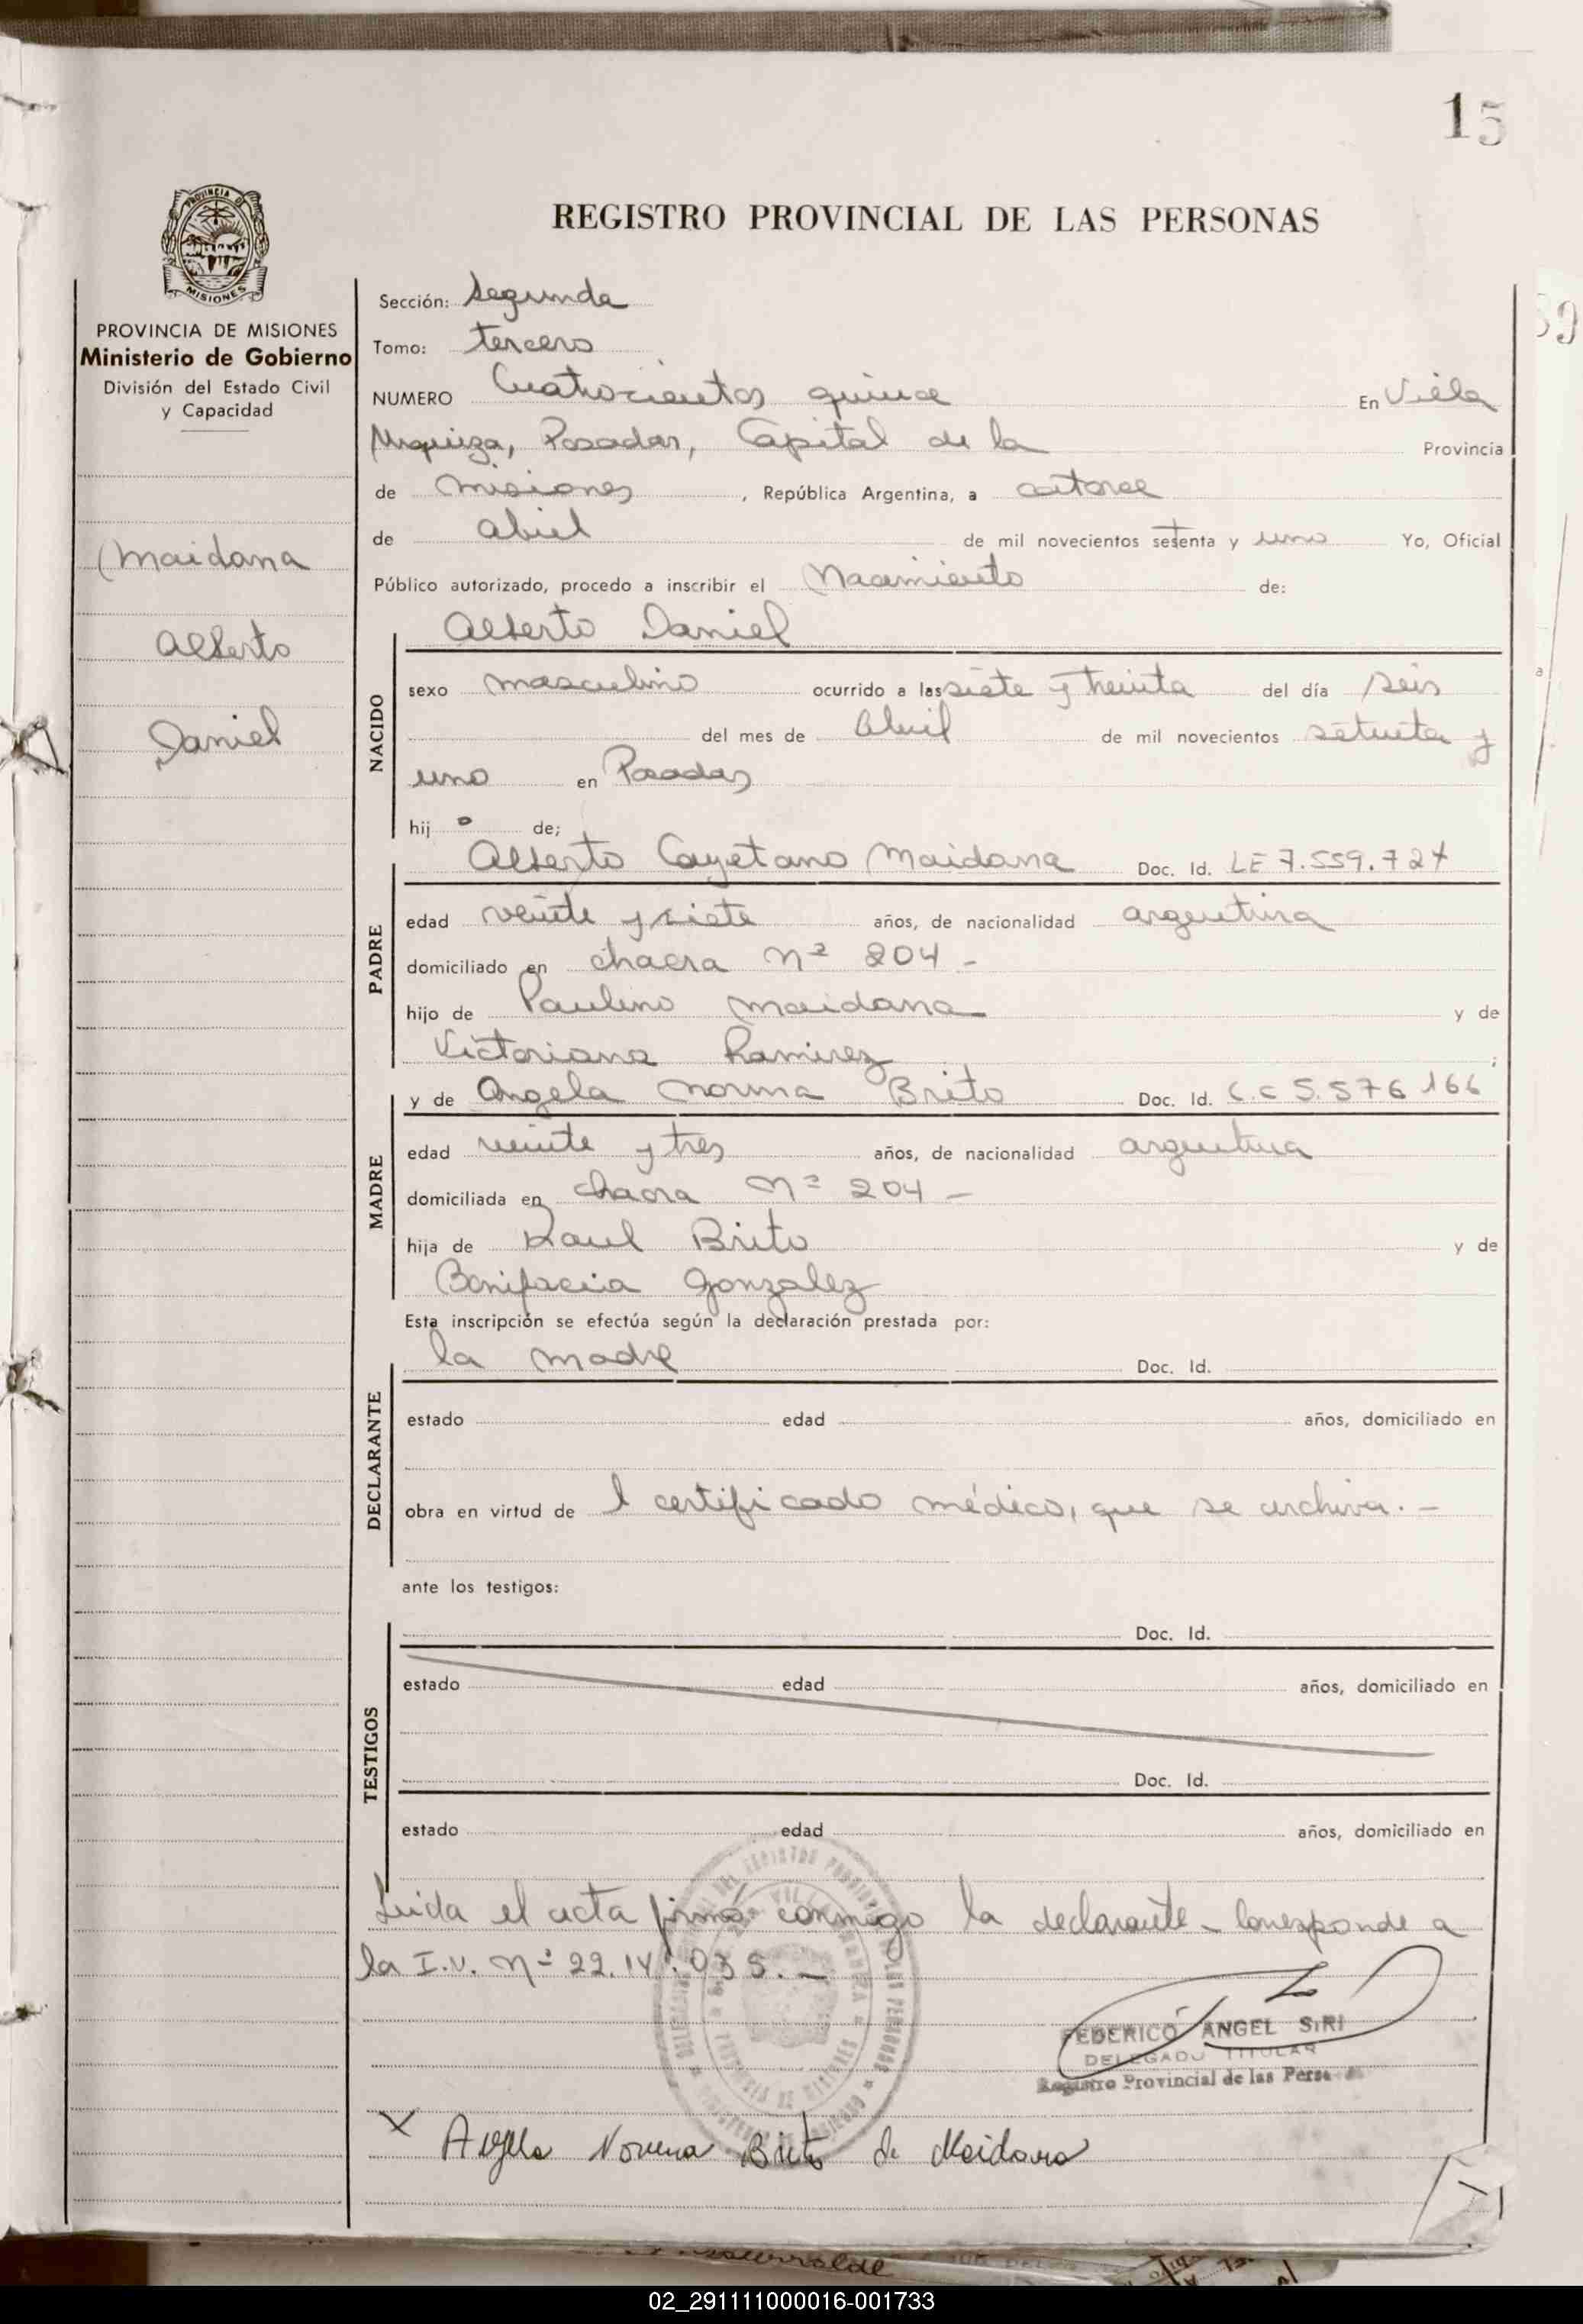 15
REGISTRO PROVINCIAL DE LAS PERSONAS
PROVINCIA DE MISIONES
Ministerio de Gobierno
División del Estado Civil
y Capacidad
Maidana
Alberto
Daniel
Sección: Segunda
Tomo: tercero
NUMERO Cuatrocientos quince En Villa
Urquiza, Posadas, Capital de la Provincia
de Misiones, República Argentina, a catorce
de abril de mil novecientos setenta y uno Yo, Oficial
Público autorizado, procedo a inscribir el Nacimiento de:
Alberto Daniel
NACIDO
sexo masculino ocurrido a las siete y treinta del día seis
del mes de Abril de mil novecientos setenta y
uno en Posadas
hijo de;
Alberto Cayetano Maidana Doc. Id. LE 7.559.724
PADRE
edad veinte y siete años, de nacionalidad argentina
domiciliado en chacra Nº 204 -
hijo de Paulino Maidana y de
Victoriana Ramirez ;
y de Angela Norma Brito Doc. Id. L.C 5.576 166
MADRE
edad veinte y tres años, de nacionalidad argentina
domiciliada en chacra Nº 204 -
hija de Raul Brito y de
Bonifacia Gonzalez
Esta inscripción se efectúa según la declaración prestada por:
la madre Doc. Id.
DECLARANTE
estado edad años, domiciliado en
obra en virtud de l certificado médico, que se archiva. -
ante los testigos:
Doc. Id.
TESTIGOS
estado edad años, domiciliado en
Doc. Id.
estado edad años, domiciliado en
Leida el acta firmó conmigo la declarante - Corresponde a
la I.N. Nº 22.141.035. -
FEDERICO ANGEL SIRI
DELEGADO TITULAR
Registro Provincial de las Perso
X Angela Norma Brito de Maidana
02_291111000016-001733